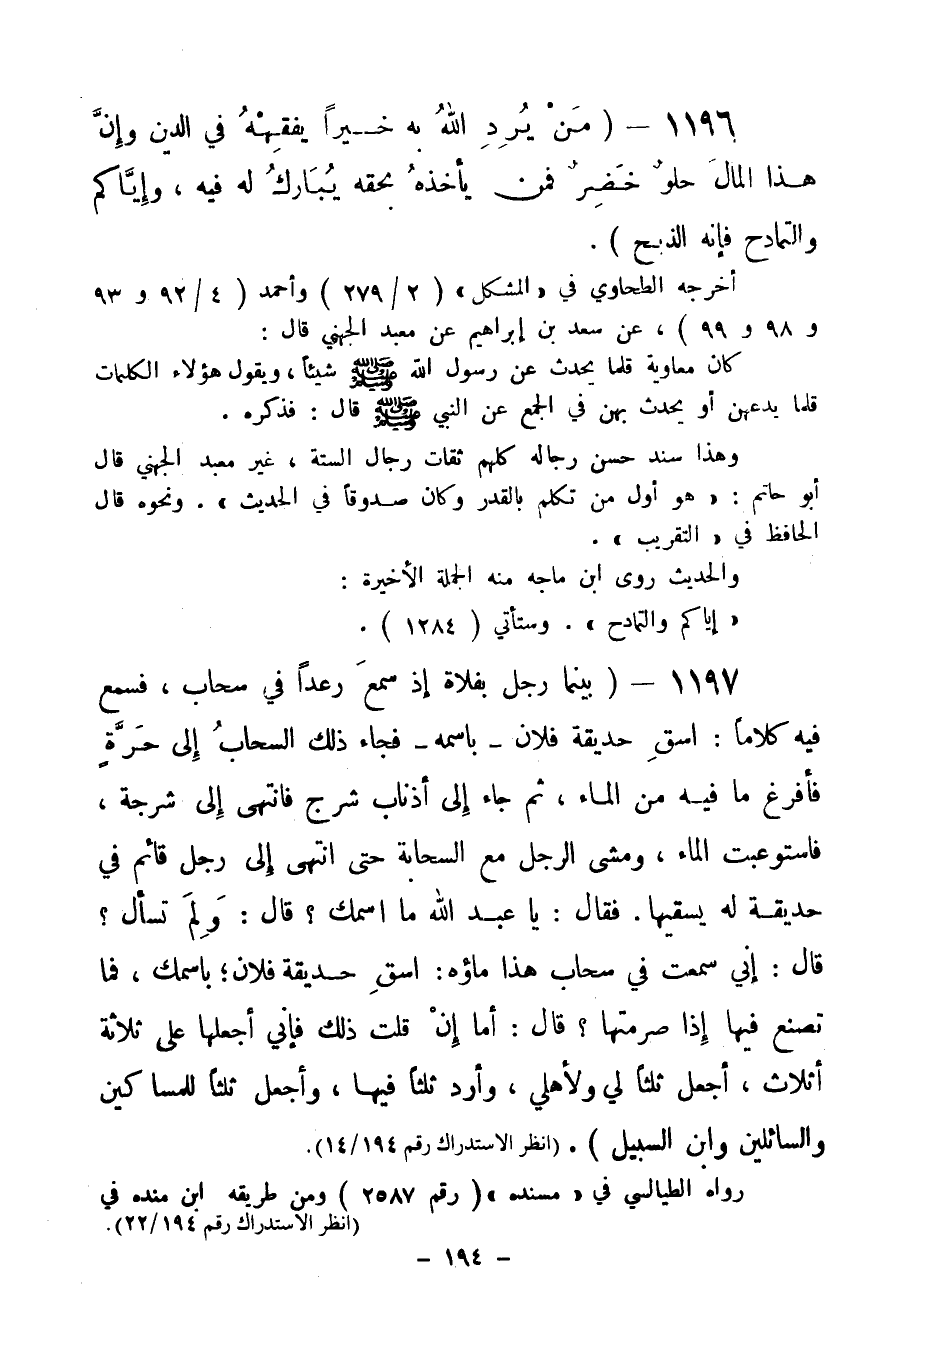 ١١٩٦ – ( مَنْ يُرِدِ اللهُ به خيراً يفقهْهُ في الدين وإنَّ
هذا المالَ حلوٌ خَضِرٌ فمن يأخذهُ بحقه يُبَاركُ له فيه ، وإيَّاكم
والتمادح فإنه الذبح ) .
أخرجه الطحاوي في «المشكل» ( ٢/ ٢٧٩ ) وأحمد ( ٤/ ٩٢ و ٩٣
و ٩٨ و ٩٩ ) ، عن سعد بن إبراهيم عن معبد الجهني قال :
كان معاوية قلما يحدث عن رسول الله ﷺ شيئاً ، ويقول هؤلاء الكلمات
قلما يدعهن أو يحدث بهن في الجمع عن النبي ﷺ قال : فذكره .
وهذا سند حسن رجاله كلهم ثقات رجال الستة ، غير معبد الجهني قال
أبو حاتم : « هو أول من تكلم بالقدر وكان صدوقاً في الحديث » . ونحوه قال
الحافظ في « التقريب » .
والحديث روى ابن ماجه منه الجملة الأخيرة :
« إياكم والتمادح » . وستأتي ( ١٢٨٤ ) .
١١٩٧ – ( بينما رجل بفلاة إذ سمعَ رعداً في سحاب ، فسمع
فيه كلاماً : اسقِ حديقة فلان – باسمه – فجاء ذلك السحابُ إلى حَرَّةٍ
فأفرغ ما فيه من الماء ، ثم جاء إلى أذناب شرج فانتهى إلى شرجة ،
فاستوعبت الماء ، ومشى الرجل مع السحابة حتى انتهى إلى رجل قائم في
حديقة له يسقيها . فقال : يا عبد الله ما اسمك ؟ قال : وَلِمَ تسأل ؟
قال : إني سمعت في سحاب هذا ماؤه : اسقِ حديقة فلان؛ باسمك ، فما
تصنع فيها إذا صرمتها ؟ قال : أما إنْ قلت ذلك فإني أجعلها على ثلاثة
أثلاث ، أجعل ثلثاً لي ولأهلي ، وأرد ثلثاً فيها ، وأجعل ثلثاً للمساكين
والسائلين وابن السبيل ) . (انظر الاستدراك رقم ١٤/١٩٤).
رواه الطيالسي في « مسنده »( رقم ٢٥٨٧ ) ومن طريقه ابن منده في
(انظر الاستدراك رقم ٢٢/١٩٤).
– ١٩٤ –